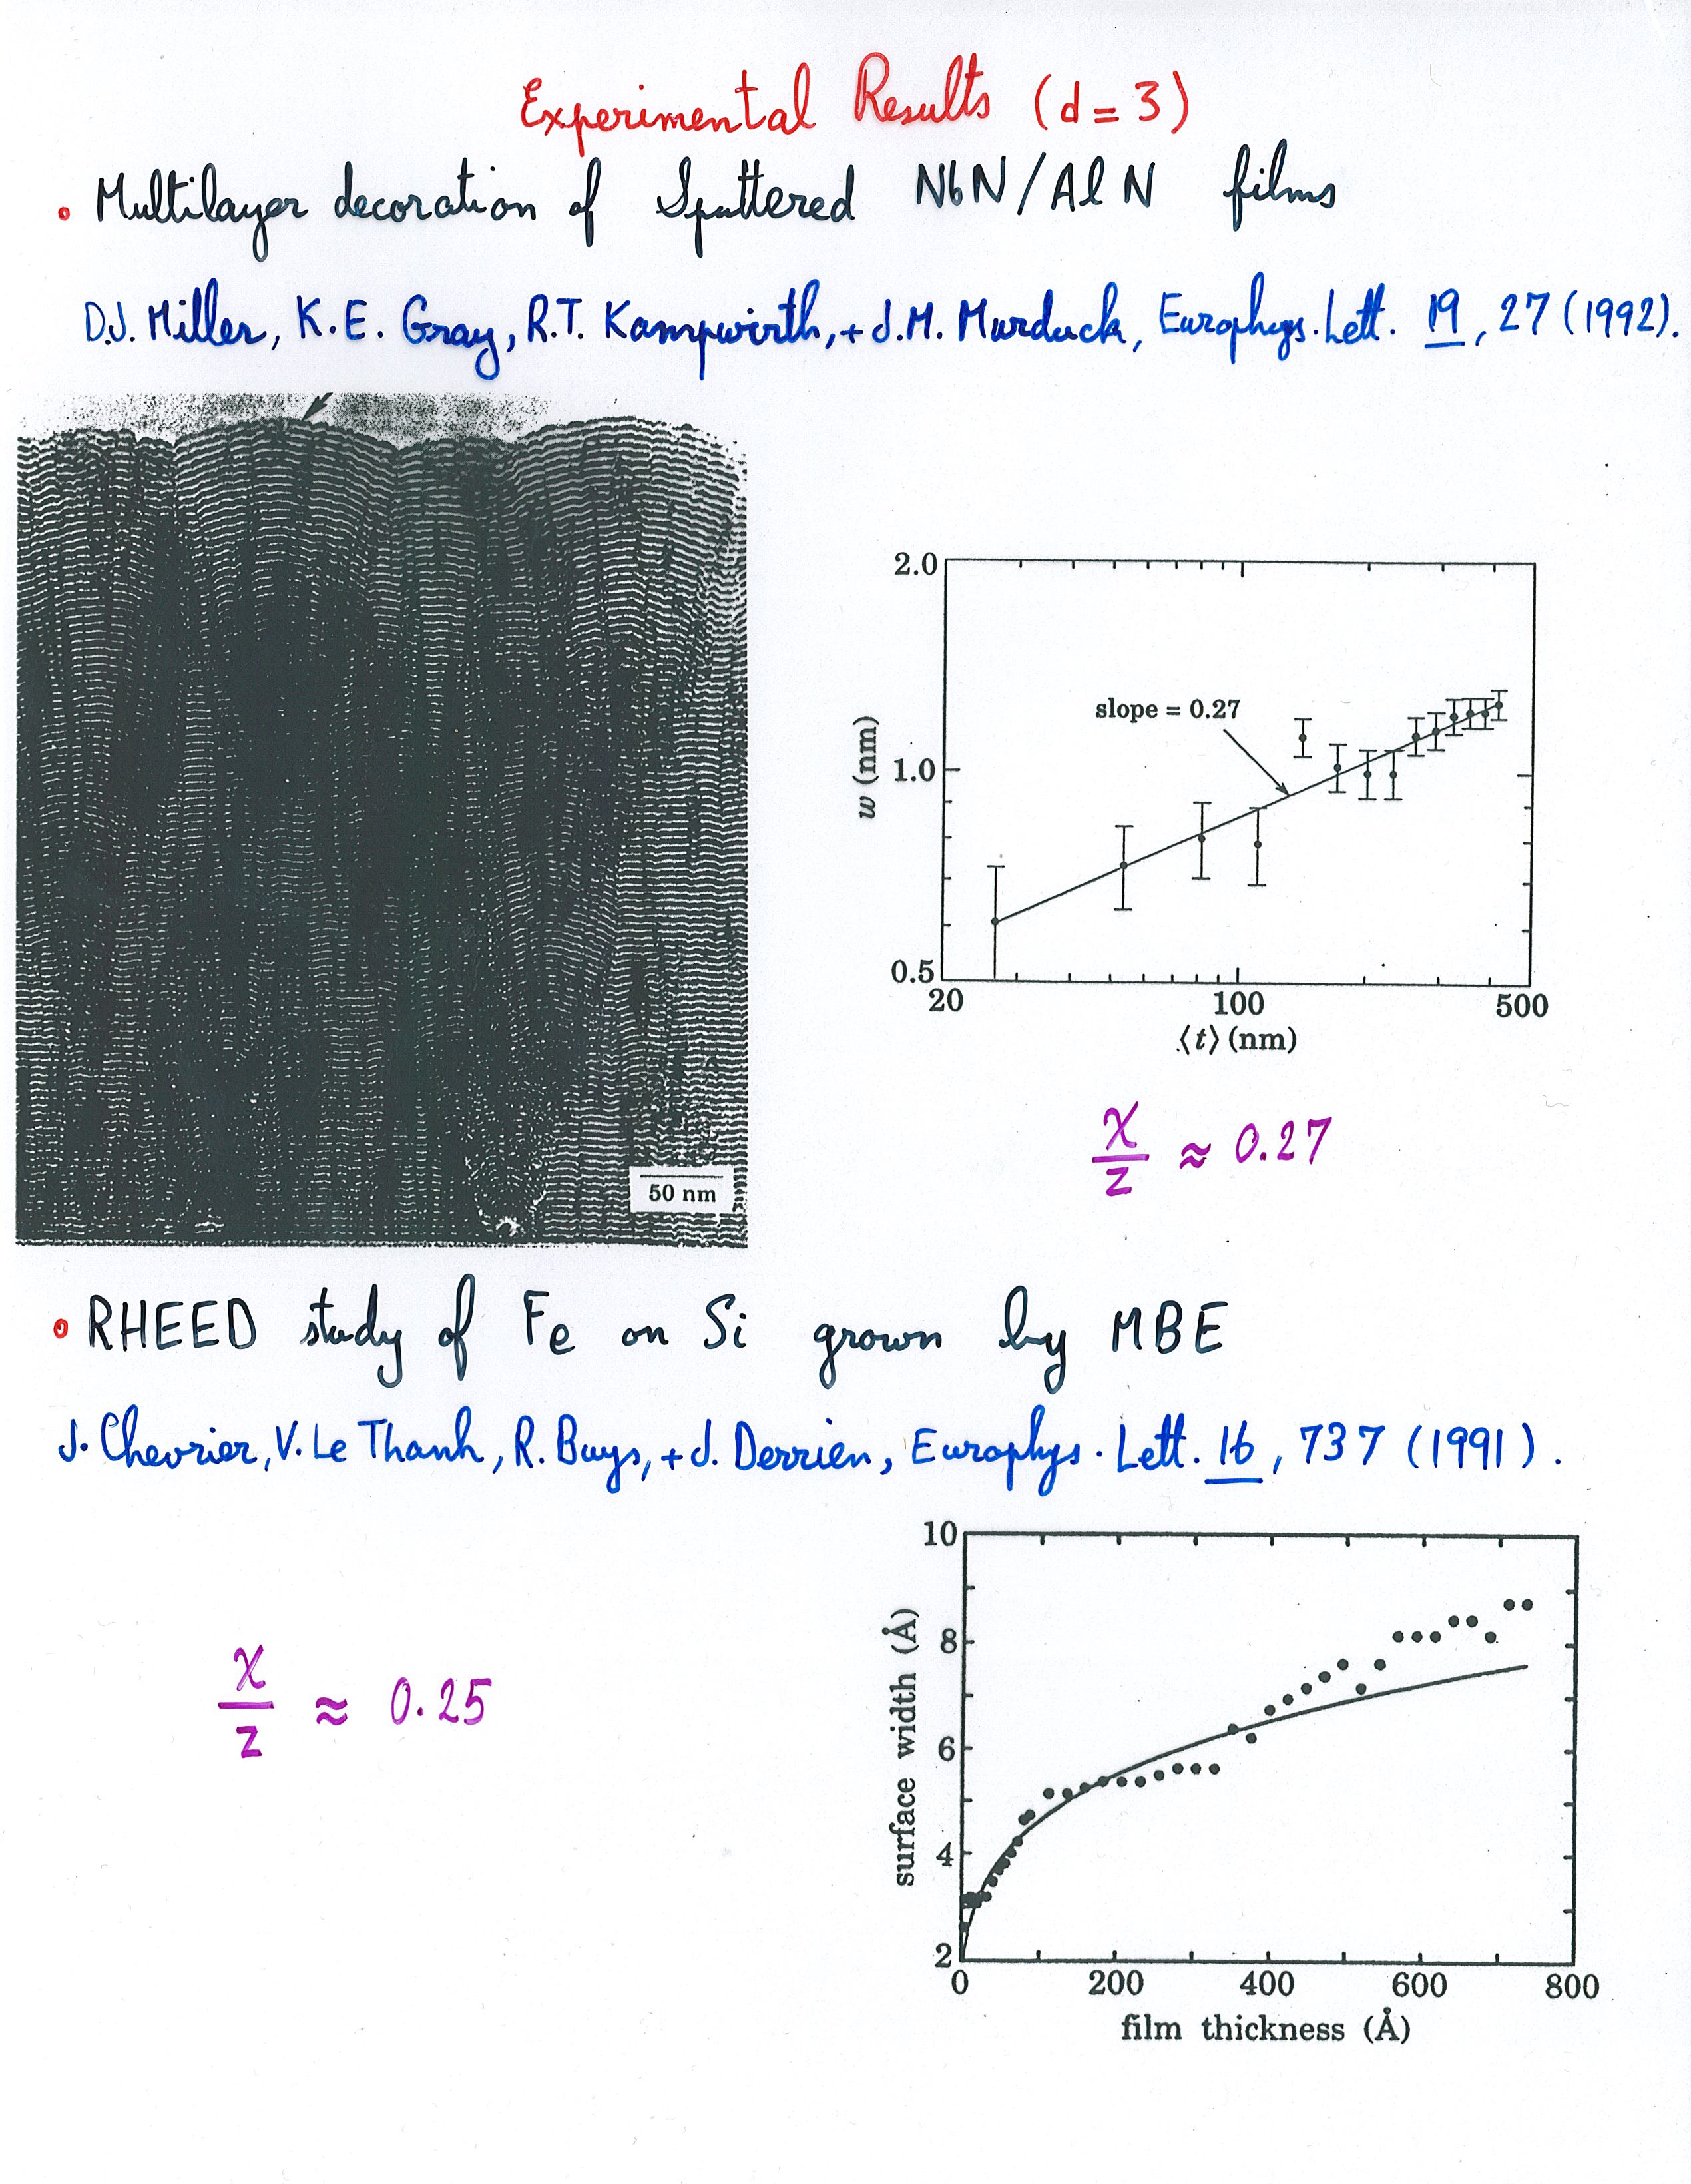 Experimental Results (d = 3)
• Multilayer decoration of Sputtered NbN/AlN films
D.J. Miller, K.E. Gray, R.T. Kampwirth, + J.M. Murduck, Europhys. Lett. 19, 27 (1992).
50 nm
2.0
1.0
0.5
w (nm)
slope = 0.27
20 100 500
⟨t⟩ (nm)
χ/z ≈ 0.27
• RHEED study of Fe on Si grown by MBE
J. Chevrier, V. Le Thanh, R. Buys, + J. Derrien, Europhys. Lett. 16, 737 (1991).
χ/z ≈ 0.25
10
8
6
4
2
surface width (Å)
0 200 400 600 800
film thickness (Å)